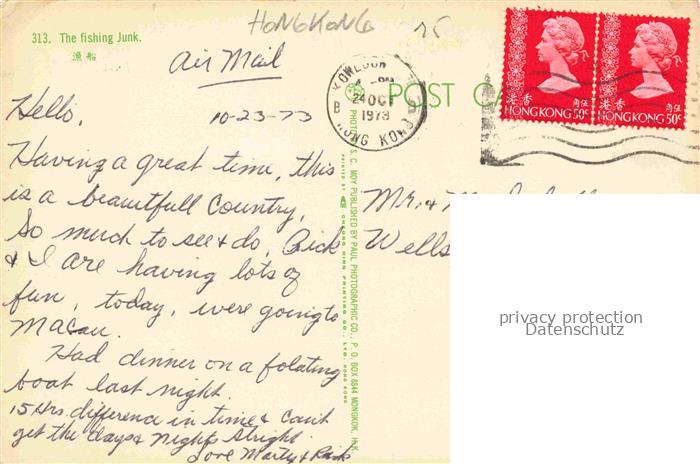 HONGKONG 25
313. The fishing Junk.
漁船
Air Mail
KOWLOON
4 - PM
24 OCT
1973
B
HONG KONG
POST CA
香港 伍角
HONG KONG 50c
香港 伍角
HONG KONG 50c
Hello, 10-23-73
Having a great time, this
is a beautfull Country,
So much to see & do, Dick
& I are having lots of
fun, today, were going to
Macau.
Had dinner on a folating
boat last night.
15 Hrs. difference in time & can't
get the days & nights stright.
Love Marty &
Mr. & M
Wells
PHOTO S. C. MOY PUBLISHED BY PAUL PHOTOGRAPHIC CO., P. O. BOX 8844 MONGKOK, H.K.
PRINTED BY CHEONG MING PRINTING CO., LTD. HONG KONG
privacy protection
Datenschutz